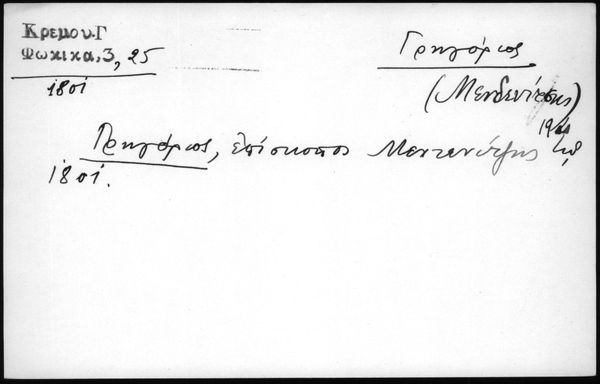 Κρεμου.Γ
Φωκικα,3, 25
1801
Γρηγόριος
(Μενδενίτσης)
Γρηγόριος, επίσκοπος Μεντενίτζης
1801.